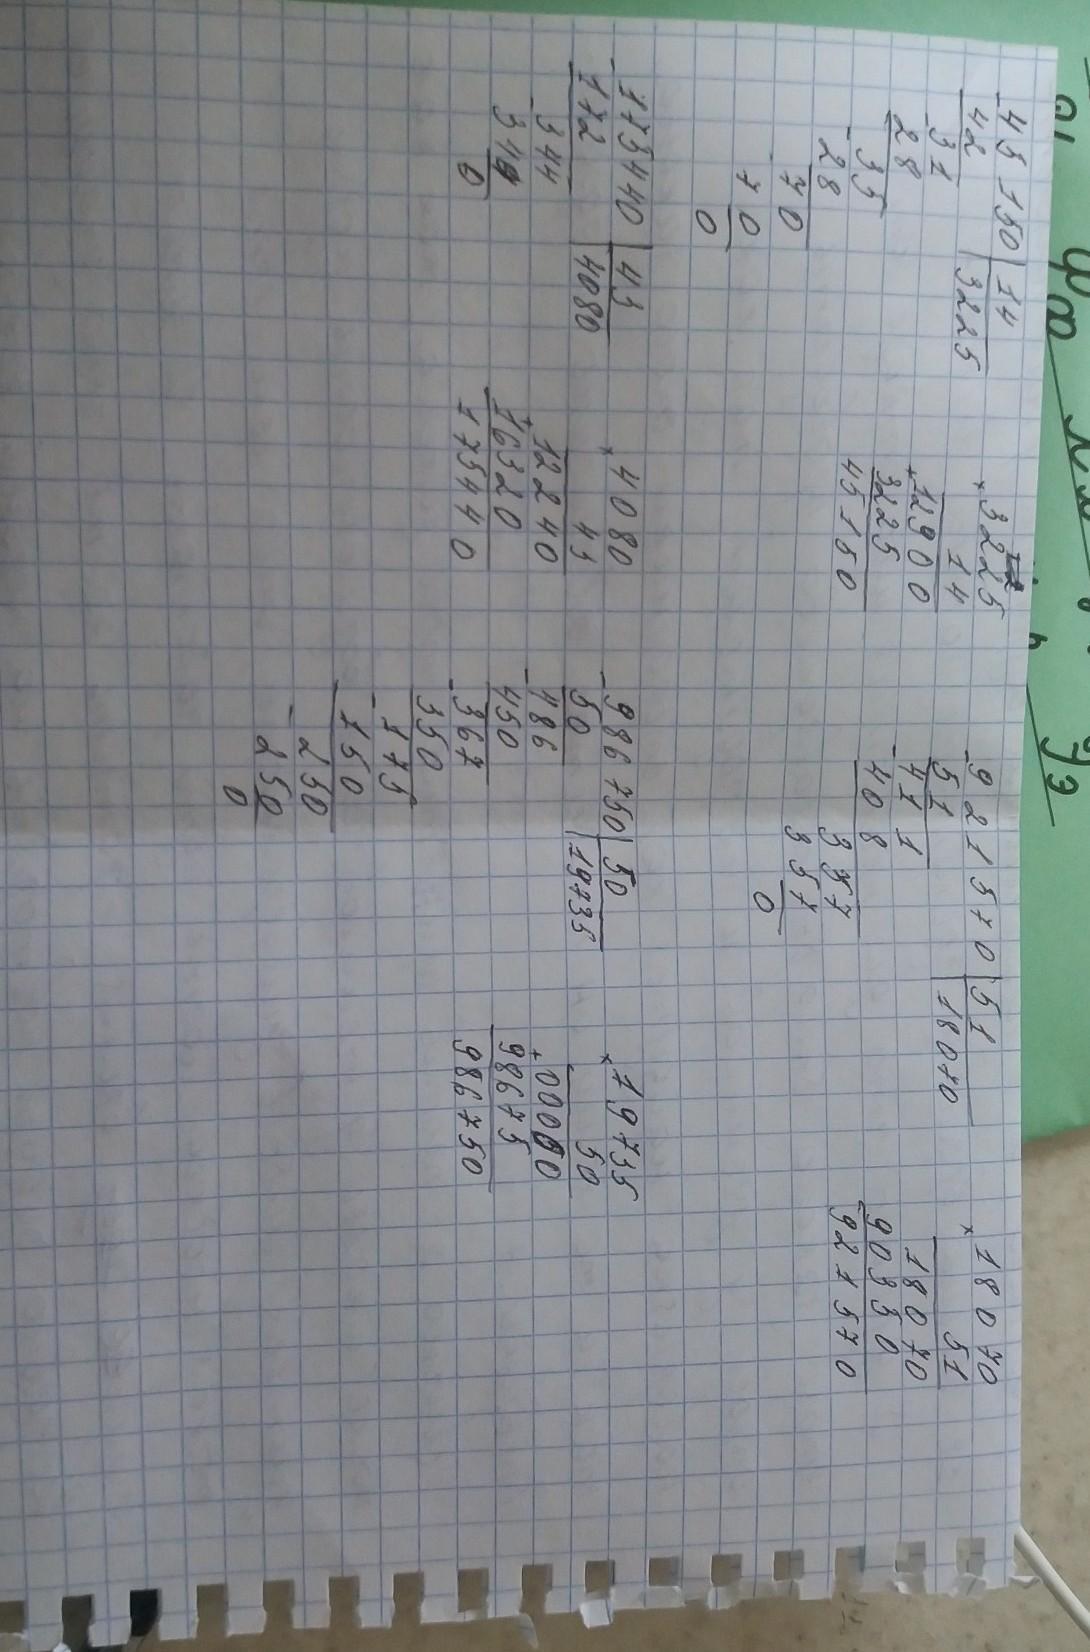 -45150 | 14
42 | 3225
-31
28
-35
28
-70
70
0
×3225
14
+12900
3225
45150
-921570 | 51
51 | 18070
-411
408
357
357
0
×18070
51
18070
90350
921570
-175440 | 43
172 | 4080
-344
344
0
×4080
43
+12240
16320
175440
-986750 | 50
50 | 19735
-486
450
-367
350
-175
150
-250
250
0
×19735
50
+00000
98675
986750